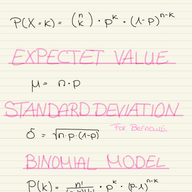 P(X=k) = (n k) · p^k · (1-p)^n-k
EXPECTET VALUE
μ = n·p
STANDARD DEVIATION
For Bernoulli
δ = √n·p·(1-p)
BINOMIAL MODEL
P(k) = n! · p^k · (p-1)^n-k